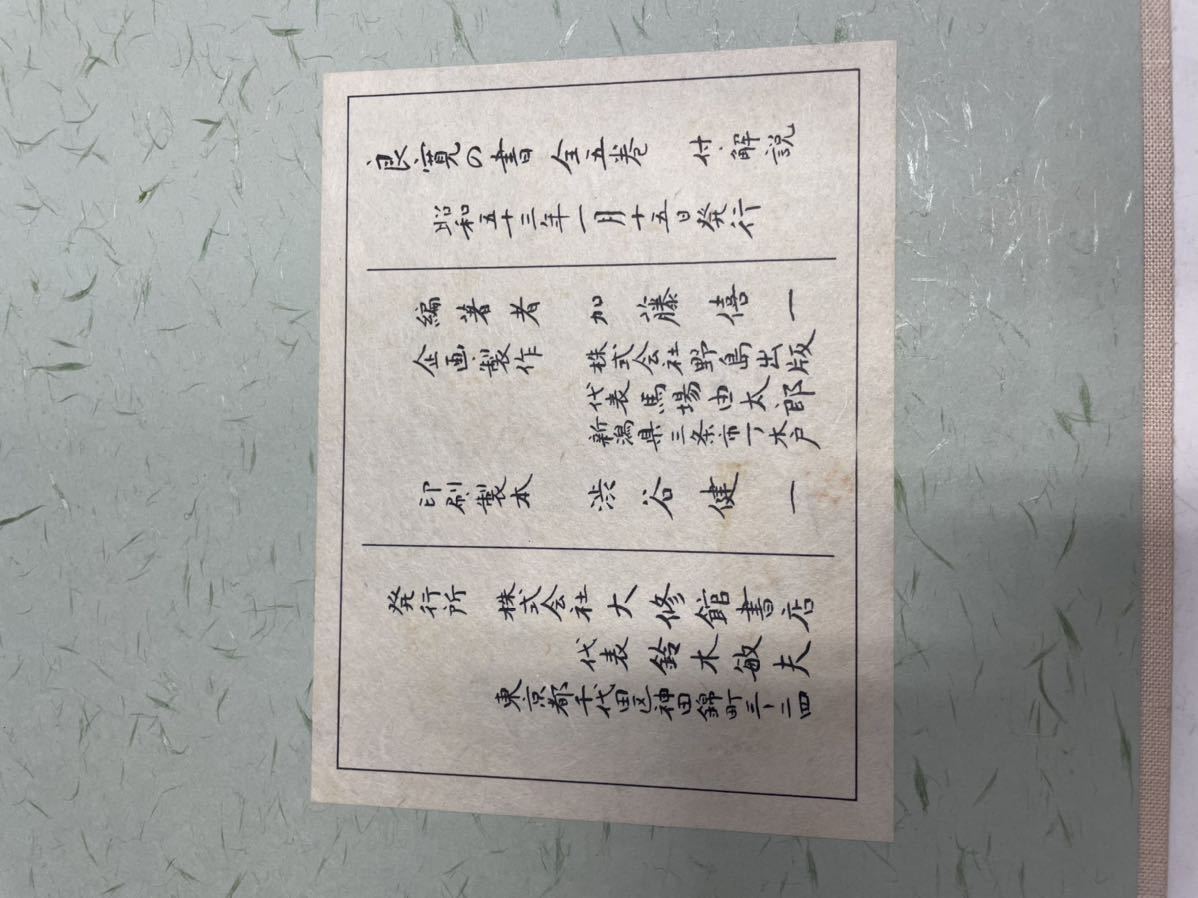 良寛の書 全五巻 付・解説
昭和五十三年一月十五日発行
編著者 加藤僖一
企画製作 株式会社野島出版
代表 馬場由太郎
新潟県三条市一ノ木戸
印刷製本 渋谷健一
発行所 株式会社大修館書店
代表 鈴木敏夫
東京都千代田区神田錦町三ノ二四